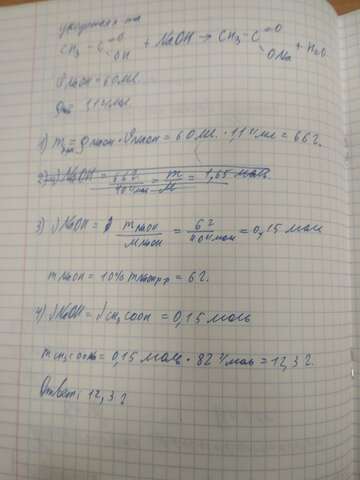 уксусная к-та
CH₃ - C =O OH + NaOH → CH₃ - C =O ONa + H₂O
VNaOH = 60 мл.
1,1 г/мл.
1) m р-р = ρ NaOH · V NaOH = 60 мл. · 1,1 г/мл = 66 г.
2) NaOH = 66 г = m/M = 1,65 моль
3) νNaOH = m NaOH / M NaOH = 6 г / 40 г/моль = 0,15 моль
m NaOH = 10% m NaOH р-р = 6 г.
4) νNaOH = νCH₃COOH = 0,15 моль
m CH₃COONa = 0,15 моль · 82 г/моль = 12,3 г.
Ответ: 12,3 г